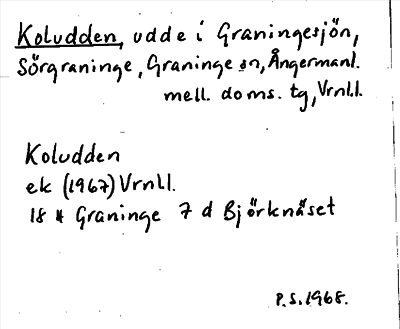 Koludden, udde i Graningesjön,
Sörgraninge, Graninge sn, Ångermanl.
mell. doms. tg, Vrnll.
Koludden
ek (1967) Vrnll.
18 H Graninge 7 d Björknäset
P.S. 1968.